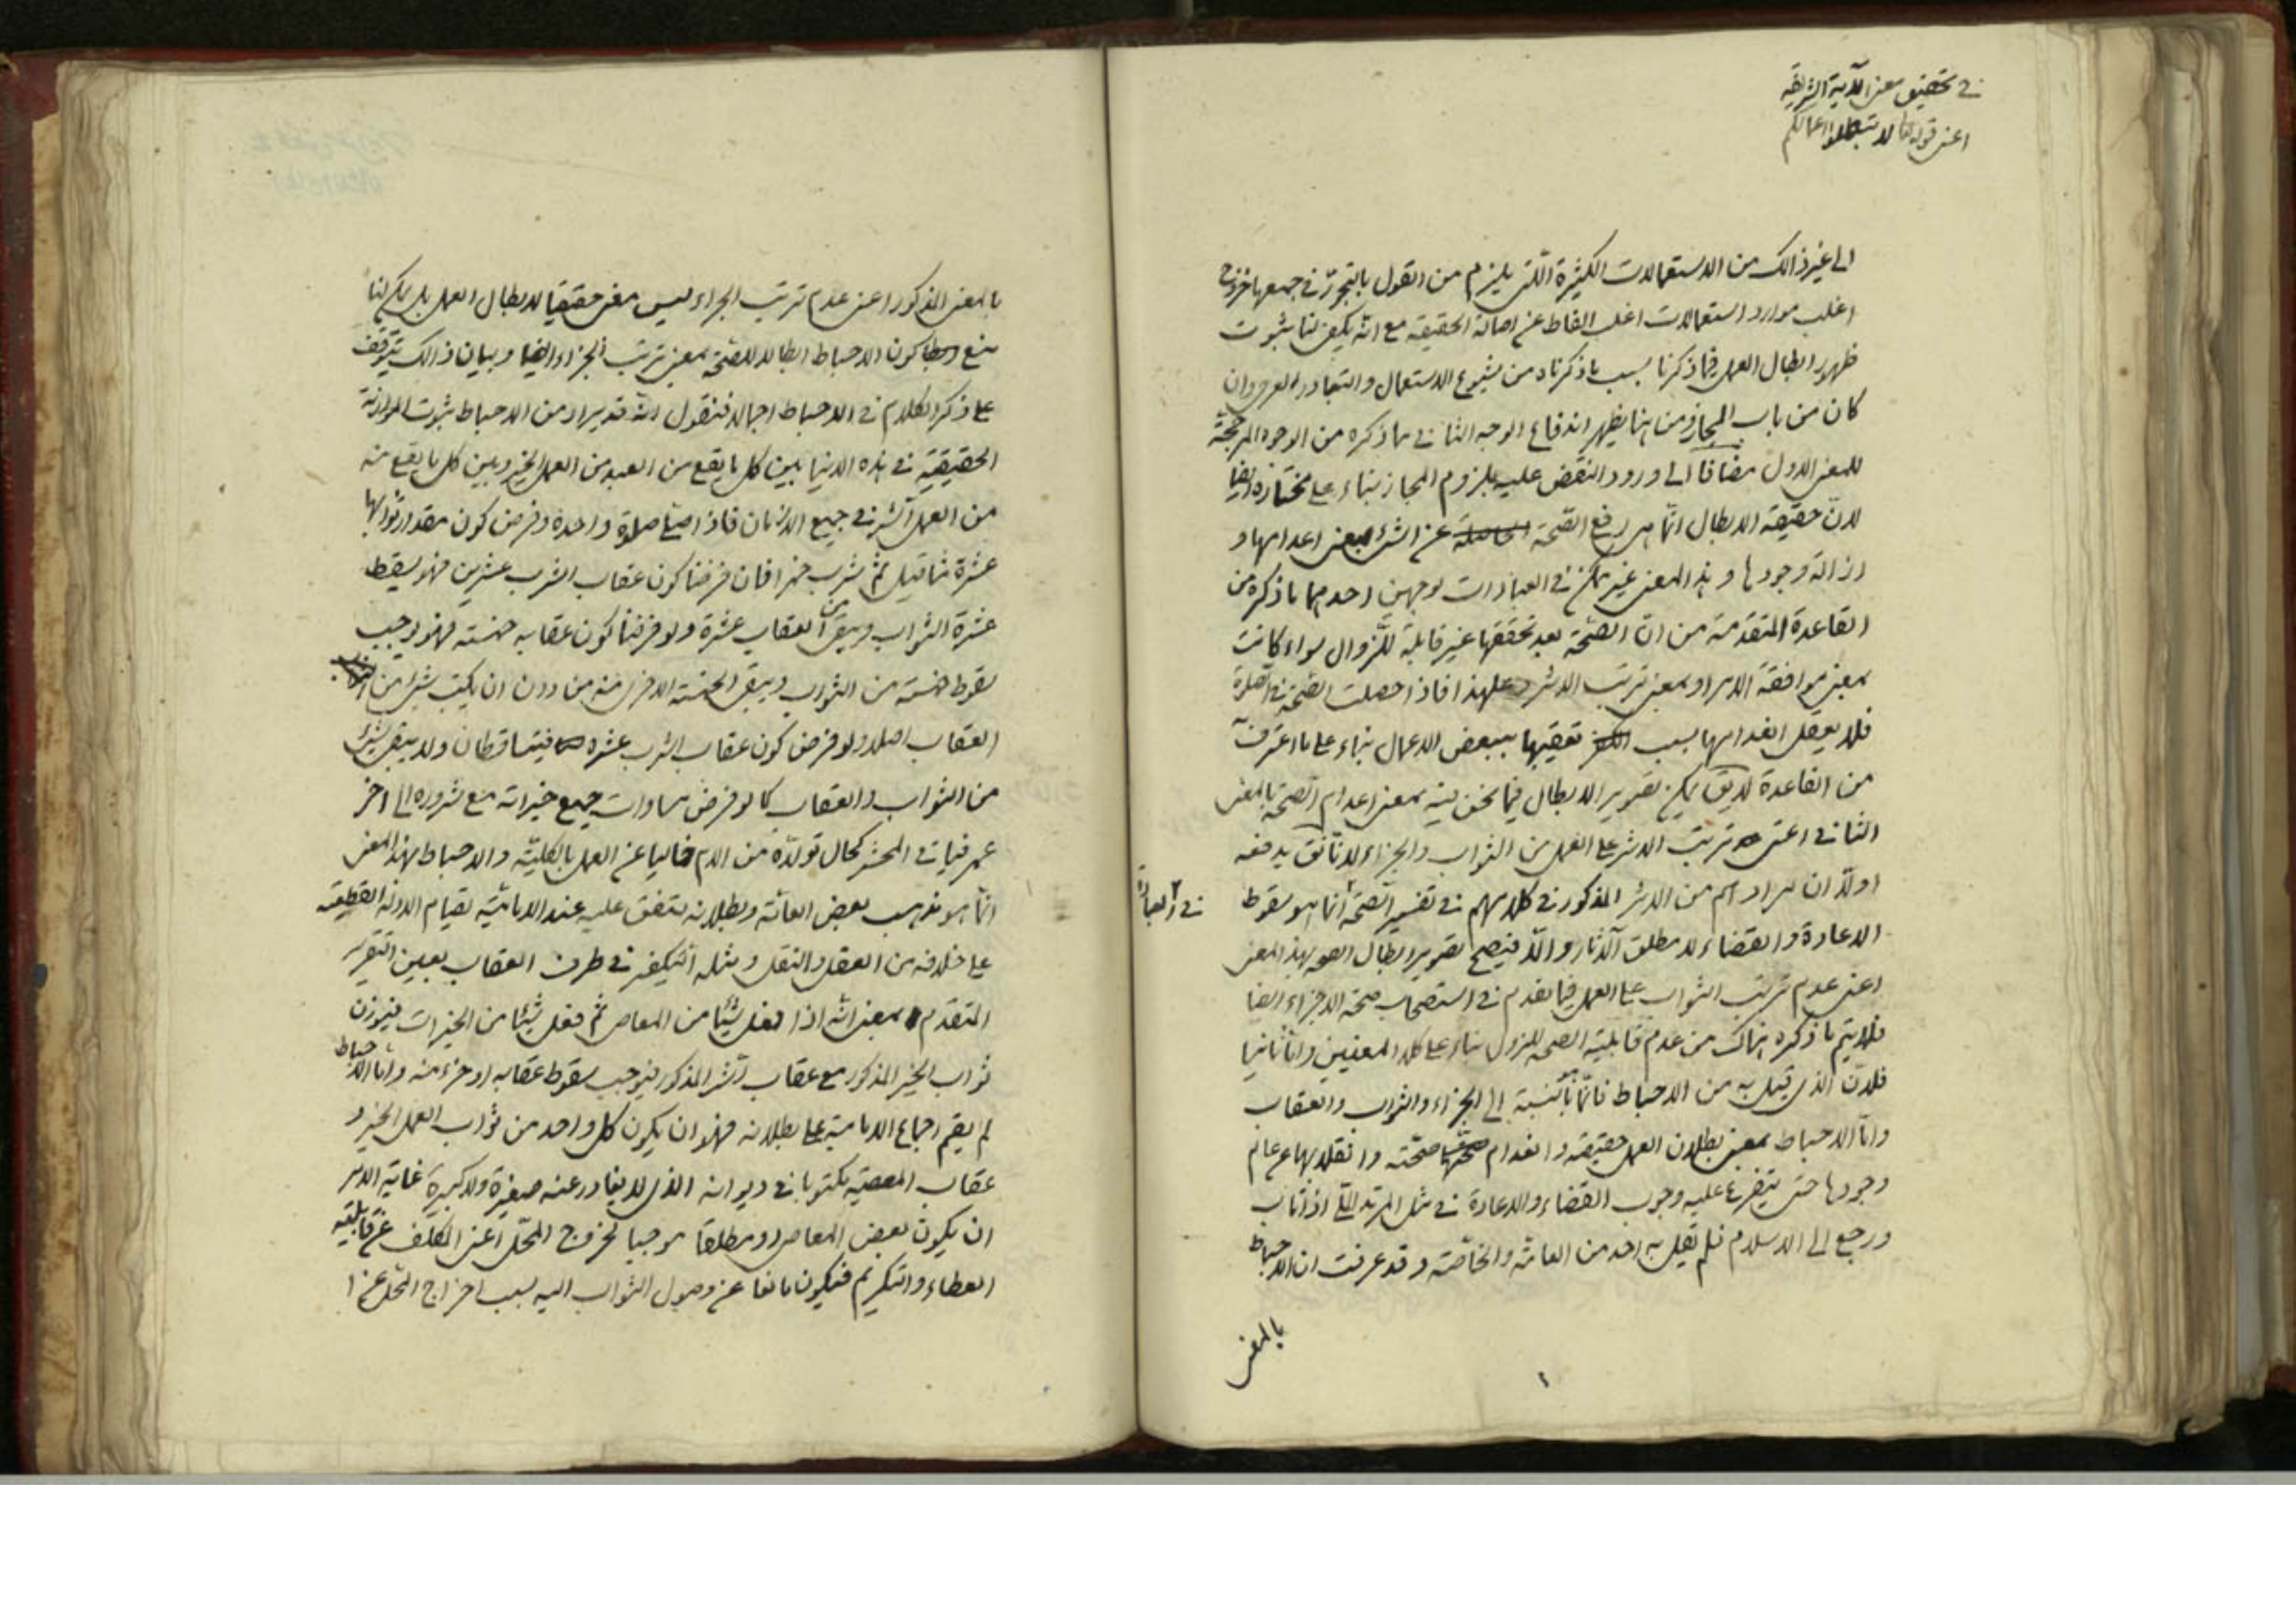 في تحقيق معنى الآية الشريفة
اعنى قوله تعالى لا تبطلوا اعمالكم
الى غير ذالك من الاستعمالات الكثيرة الّتى يلزم من القول بالتجوّز فى جميعها خروج
اغلب موارد استعمالات اغلب الفاظ عن اصالة الحقيقة مع انّه يكفى لنا ثبوت
ظهور ابطال العمل فيما ذكرنا بسبب ما ذكرناه من شيوع الاستعمال والتبادر العرفى وان
كان من باب المجاز ومن هنا يظهر اندفاع الوجه الثانى مما ذكره من الوجوه المرجحة
للمعنى الاول مضافا الى ورود النقض عليه بلزوم المجاز بناء على مختاره ايضا
لانّ حقيقة الابطال انّما هى رفع الصّحة عن الشىء بمعنى اعدامها و
ازالة وجودها وهذا المعنى غير ممكن فى العبادات لوجهين احدهما ما ذكره من
القاعدة المتقدمة من انّ الصّحة بعد تحققها غير قابلة للزوال سواء كانت
بمعنى موافقة الامر او بمعنى ترتب الاثر وعلى هذا فاذا حصلت الصّحة فى الصّلوة
فلا يعقل انعدامها بسبب تعقيبها ببعض الاعمال بناء على ما اعترف به
من القاعدة لا يق يمكن تصوير الابطال فيما نحن فيه بمعنى اعدام الصّحة بالمعنى
الثانى اعنى ترتب الاثر على العمل من الثواب والجزاء لانّا نق يدفعه
اولا انّ مرادهم من الاثر المذكور فى كلامهم فى تفسير الصّحة انّما هو سقوط
فى العبادة
الاعادة والقضاء لا مطلق الآثار والّا فيصح تصوير ابطال الصحة بهذا المعنى
اعنى عدم ترتب الثواب على العمل فيما تقدم فى استصحاب صحة الاجزاء ايضا
فلا يتم ما ذكره هناك من عدم قابلية الصحة للزوال بناء على كلا المعنيين وامّا ثانيا
فلانّ الذى قيل به من الاحباط فانّما هو بالنّسبة الى الجزاء والثواب والعقاب
وامّا الاحباط بمعنى بطلان العمل حقيقة وانعدام صحّته وانقلابها عن عالم
وجودها حتى يتفرع عليه وجوب القضاء والاعادة فى مثل المرتد الملّى اذا تاب
ورجع الى الاسلام فلم يقل به احد من العامّة والخاصّة وقد عرفت ان الاحباط
بالمعنى
بالمعنى المذكور اعنى عدم ترتب الجزاء ليس معنى حقيقيا لابطال العمل بل يمكن لنا
منع كون الاحباط ابطالا للصّحة بمعنى ترتب الجزاء ايضا وبيان ذالك يتوقف
على ذكر الكلام فى الاحباط اجمالا فنقول انّه قد يراد من الاحباط ثبوت الموازنة
الحقيقية فى هذه الدنيا بين كل ما يقع من العبد من العمل الخير وبين كل ما يقع منه
من العمل الشّر فى جميع الازمان فاذا صلّى صلوة واحدة وفرض كون مقدار ثوابها
عشرة مثاقيل ثمّ شرب خمرا فان فرضنا كون عقاب الشرب عشرين فهو يسقط
عشرة الثواب ويبقى من العقاب عشرة ولو فرضنا كون عقابه خمسة فهو يوجب
سقوط خمسة من الثواب ويبقى الخمسة الاخرى منه من دون ان يكتب شىء من
العقاب اصلا ولو فرض كون عقاب الشرب عشره فيتساقطان ولا يبقى شىء
من الثواب والعقاب كما لو فرض مساوات جميع خيراته مع شروره الى آخر
عمره فياتى المحشر كحال تولّده من الام خاليا عن العمل بالكليّة والاحباط بهذا المعنى
انّما هو مذهب بعض العامّة وبطلانه متفق عليه عند الاماميّة لقيام الادلة القطعية
على خلافه من العقل والنقل ومثله التكفير فى طرف العقاب بعين التقرير
المتقدم بمعنى انّه اذا فعل شيئا من المعاصى ثم فعل شيئا من الخيرات فيوزن
ثواب الخير المذكور مع عقاب الشّر المذكور فيوجب سقوط عقابه او جزء منه وامّا الاحباط
لم يقم اجماع الامامية على بطلانه فهو ان يكون كل واحد من ثواب العمل الخير و
عقاب المعصية مكتوبا فى ديوانه الذى لا يغادر عنه صغيرة ولا كبيرة غاية الامر
ان يكون بعض المعاصى او مطلقا موجبا لخروج المحلّ اعنى المكلف عن قابلية
العطاء والتكريم فيكون مانعا عن وصول الثواب اليه بسبب اخراج المحل عن ا